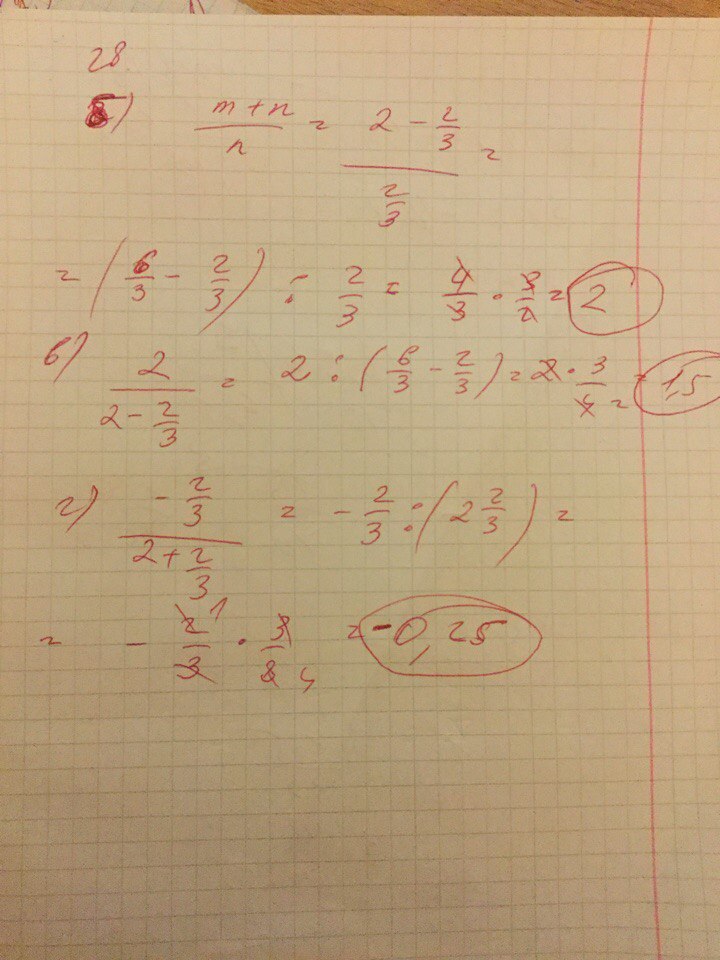 28.
б) (m+n)/n = (2 - 2/3)/(2/3) =
= (6/3 - 2/3) : 2/3 = 4/3 · 3/2 = 2
в) 2/(2 - 2/3) = 2 : (6/3 - 2/3) = 2 · 3/4 = 1,5
г) (-2/3)/(2 + 2/3) = -2/3 : (2 2/3) =
= -2/3 · 3/8 = -0,25